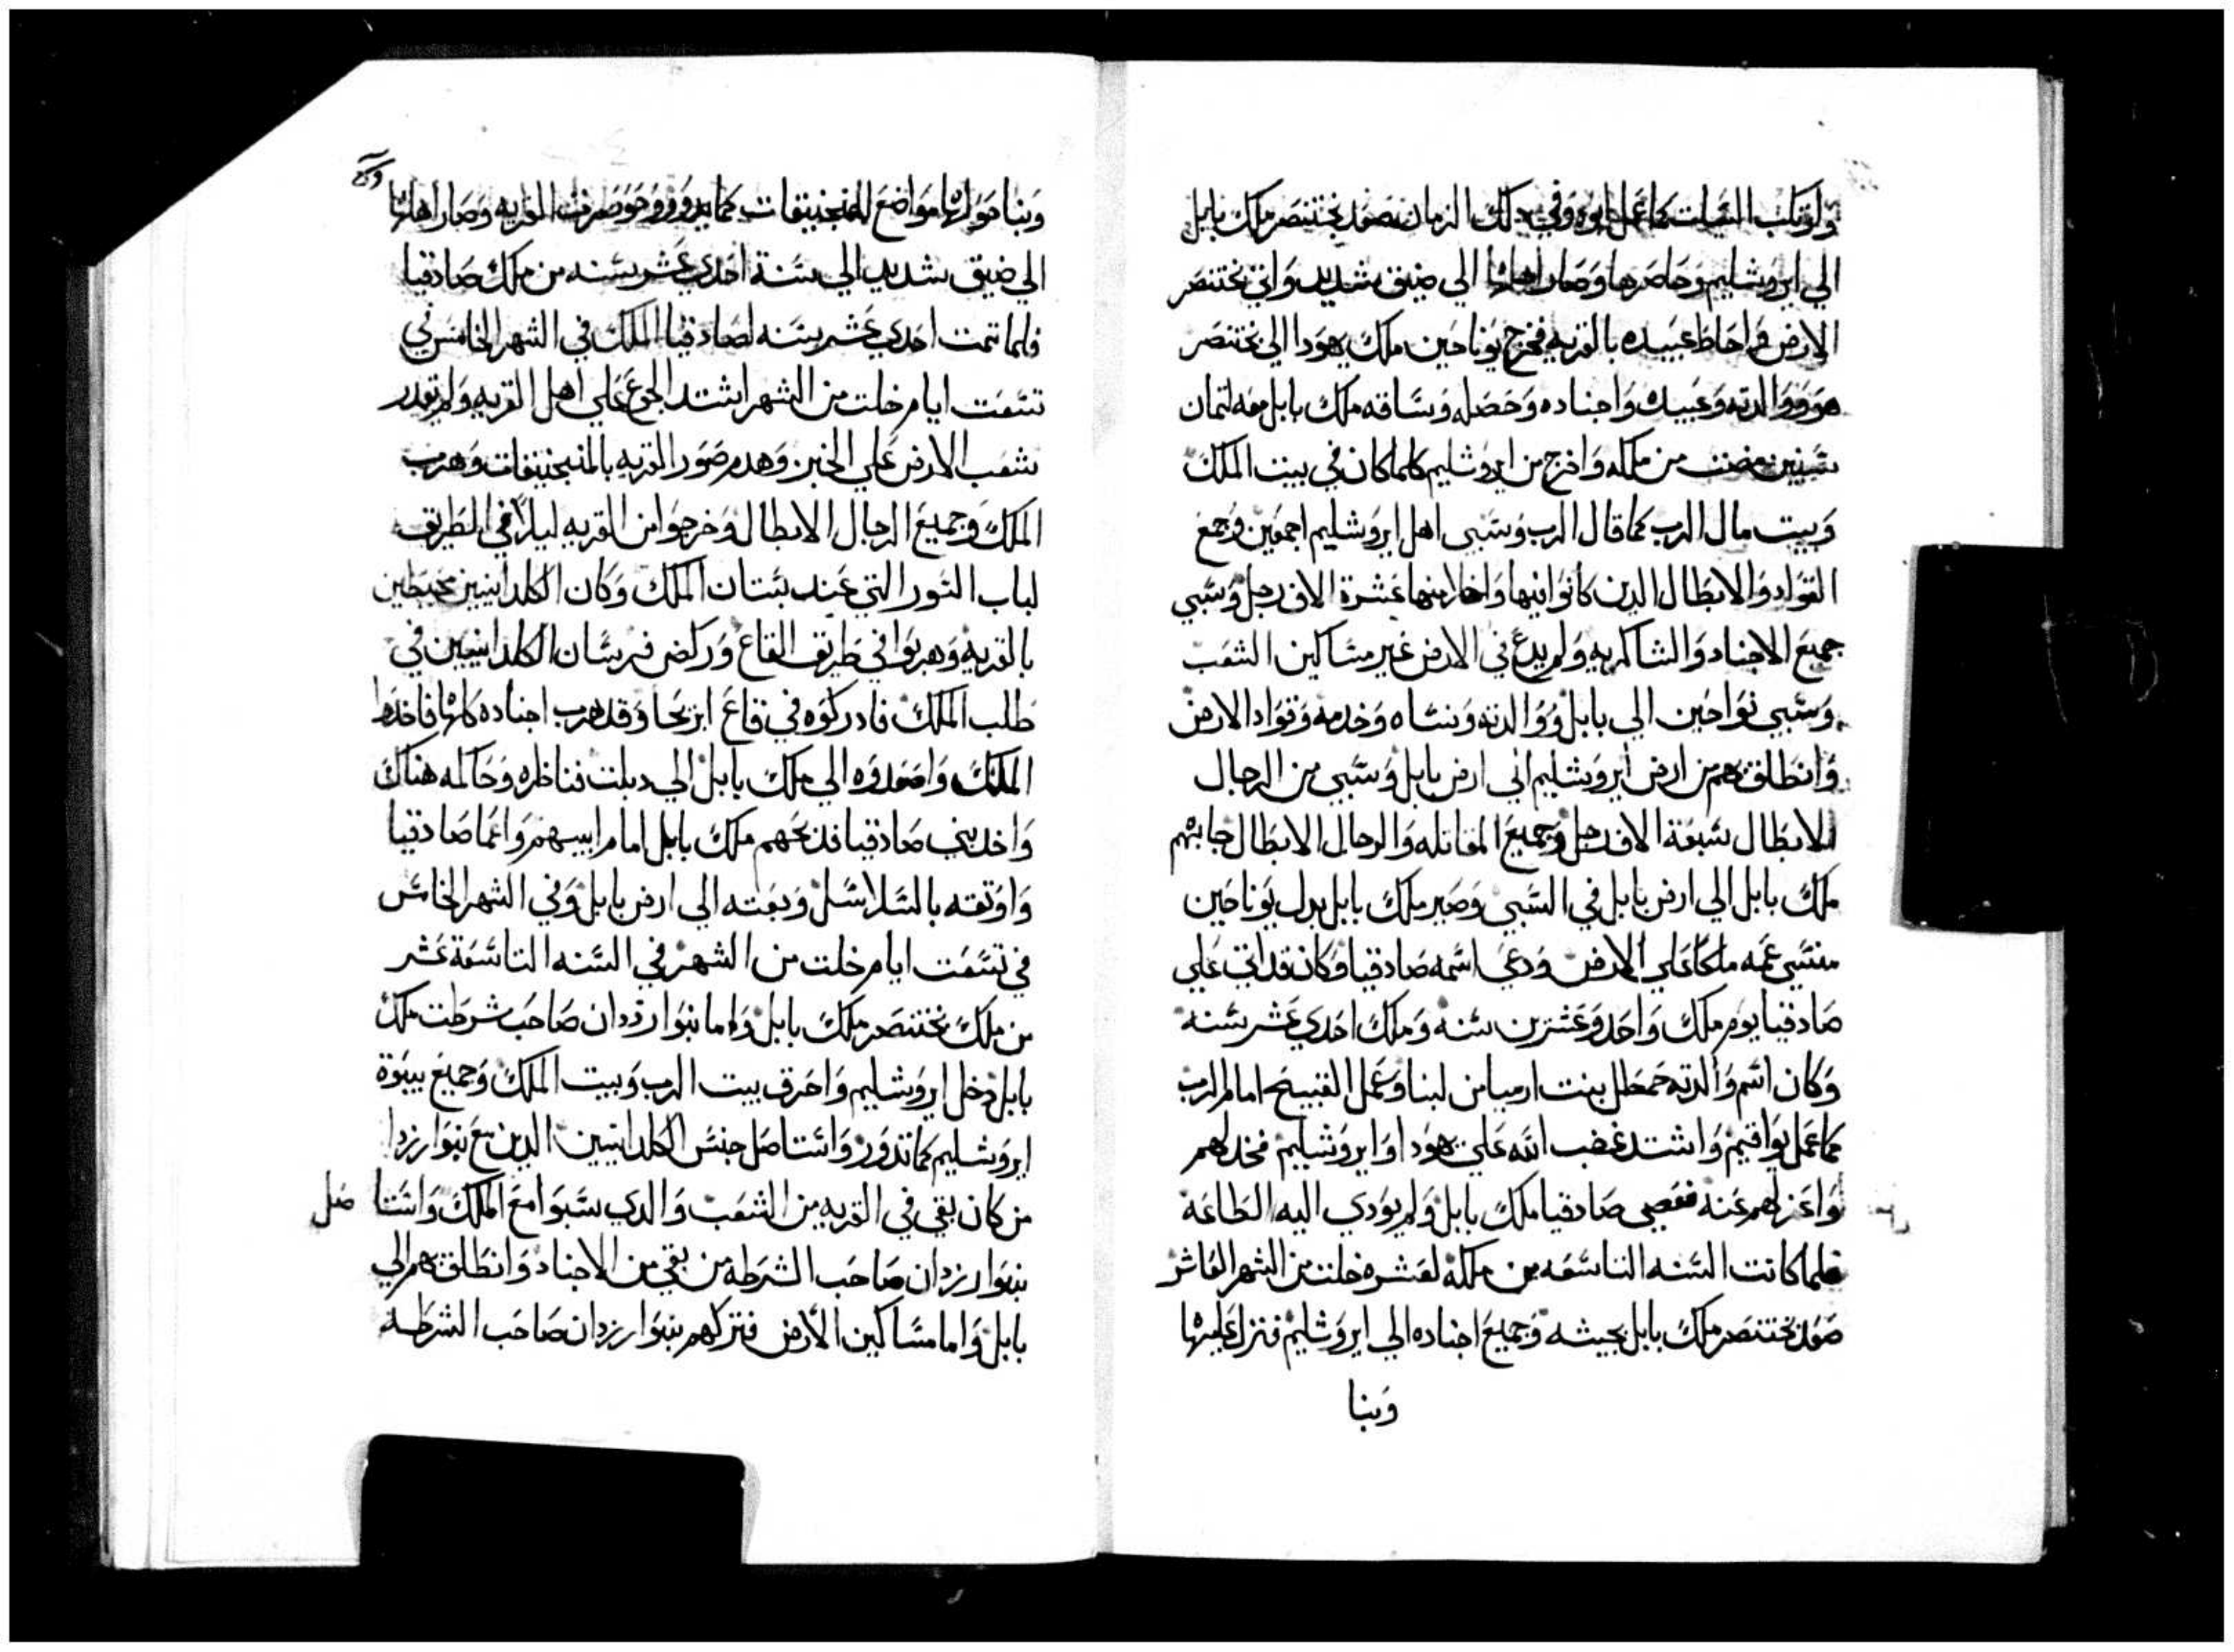 وارتكب السيات كما عمل ابوه وفي ذلك الزمان صعد بختنصر ملك بابل
الي ايروشليم وحاصرها وصار اهلها الي ضيق شديد واتي بختنصر
الارض واحاط عبيده بالقريه فخرج يوناحين ملك يهودا الي بختنصر
هو ووالدته وعبيده واجناده وخصله وساقه ملك بابل معه لتمان
سنين مضت من ملكه واخرج من ايروشليم كلما كان في بيت الملك
وبيت مال الرب كما قال الرب وسبي اهل ايروشليم اجمعين وجمع
القواد والابطال الدين كانوا فيها واجلا منها عشرة الاف رجل وسبي
جميع الاجناد والشاكريه ولم يدع في الارض غير مساكين الشعب
وسبي نواحين الي بابل ووالدته ونساه وخدمه وقواد الارض
وانطلق بهم من ارض ايروشليم الي ارض بابل وسبي من الرجال
الابطال سبعة الاف رجل وجميع المقاتله والرجال الابطال جابهم
ملك بابل الي ارض بابل في السبي وصير ملك بابل بدل يوناحين
متسي عمه ملكا علي الارض ودعي اسمه صادقيا وكان قد اتي علي
صادقيا يوم ملك واحد وعشرين سنه وملك احدي عشر سنه
وكان اسم والدته حمطل بنت ارميا من لبنا وعمل القبيح امام الرب
كما عمل يواقيم واشتد غضب الله علي يهودا وايروشليم فخدلهم
واعزلهم عنه فعصي صادقيا ملك بابل ولم يودي اليه الطاعه
فلما كانت السنه التاسعه من ملكه لعشره خلت من الشهر العاشر
صعد بختنصر ملك بابل بجيشه وجميع اجناده الي ايروشليم فنزل عليها
وبنا
وبنا حولها مواضع للمنجنيقات كما يدور وحوصرت القريه وصار اهلها
الي ضيق شديد الي سنة احدي عشر سنه من ملك صادقيا
فلما تمت احدي عشر سنه لصادقيا الملك في الشهر الخامس في
تسعت ايام خلت من الشهر اشتد الجوع علي اهل القريه ولم يقدر
شعب الارض علي الخبز وهدم صور القريه بالمنجنيقات وهرب
الملك وجميع الرجال الابطال وخرجوا من القريه ليلا في الطريق
لباب السور التي عند بستان الملك وكان الكلدانيين محيطين
بالقريه وهربوا في طريق القاع وركض فرسان الكلدانيين في
طلب الملك فادركوه في قاع ايريحا وقد هرب اجناده كلها فاخدوا
الملك واصعدوه الي ملك بابل الي دبلت فناظره وحاكمه هناك
واخد بني صادقيا فدبحهم ملك بابل امام ابيهم واعما صادقيا
واوتقه بالسلاسل وبعته الي ارض بابل وفي الشهر الخامس
في تسعت ايام خلت من الشهر في السنه التاسعة عشر
من ملك بختنصر ملك بابل واما نبوارزدان صاحب شرطت ملك
بابل دخل ايروشليم واحرق بيت الرب وبيت الملك وجميع بيوة
ايروشليم كما تدور واستاصل جنس الكلدانيين الدين مع نبوارزدا
من كان بقي في القريه من الشعب والدي سبوا مع الملك واستا صل
نبوارزدان صاحب الشرطه من بقي من الاجناد وانطلق بهم الي
بابل واما مساكين الارض فتركهم نبوارزدان صاحب الشرطه